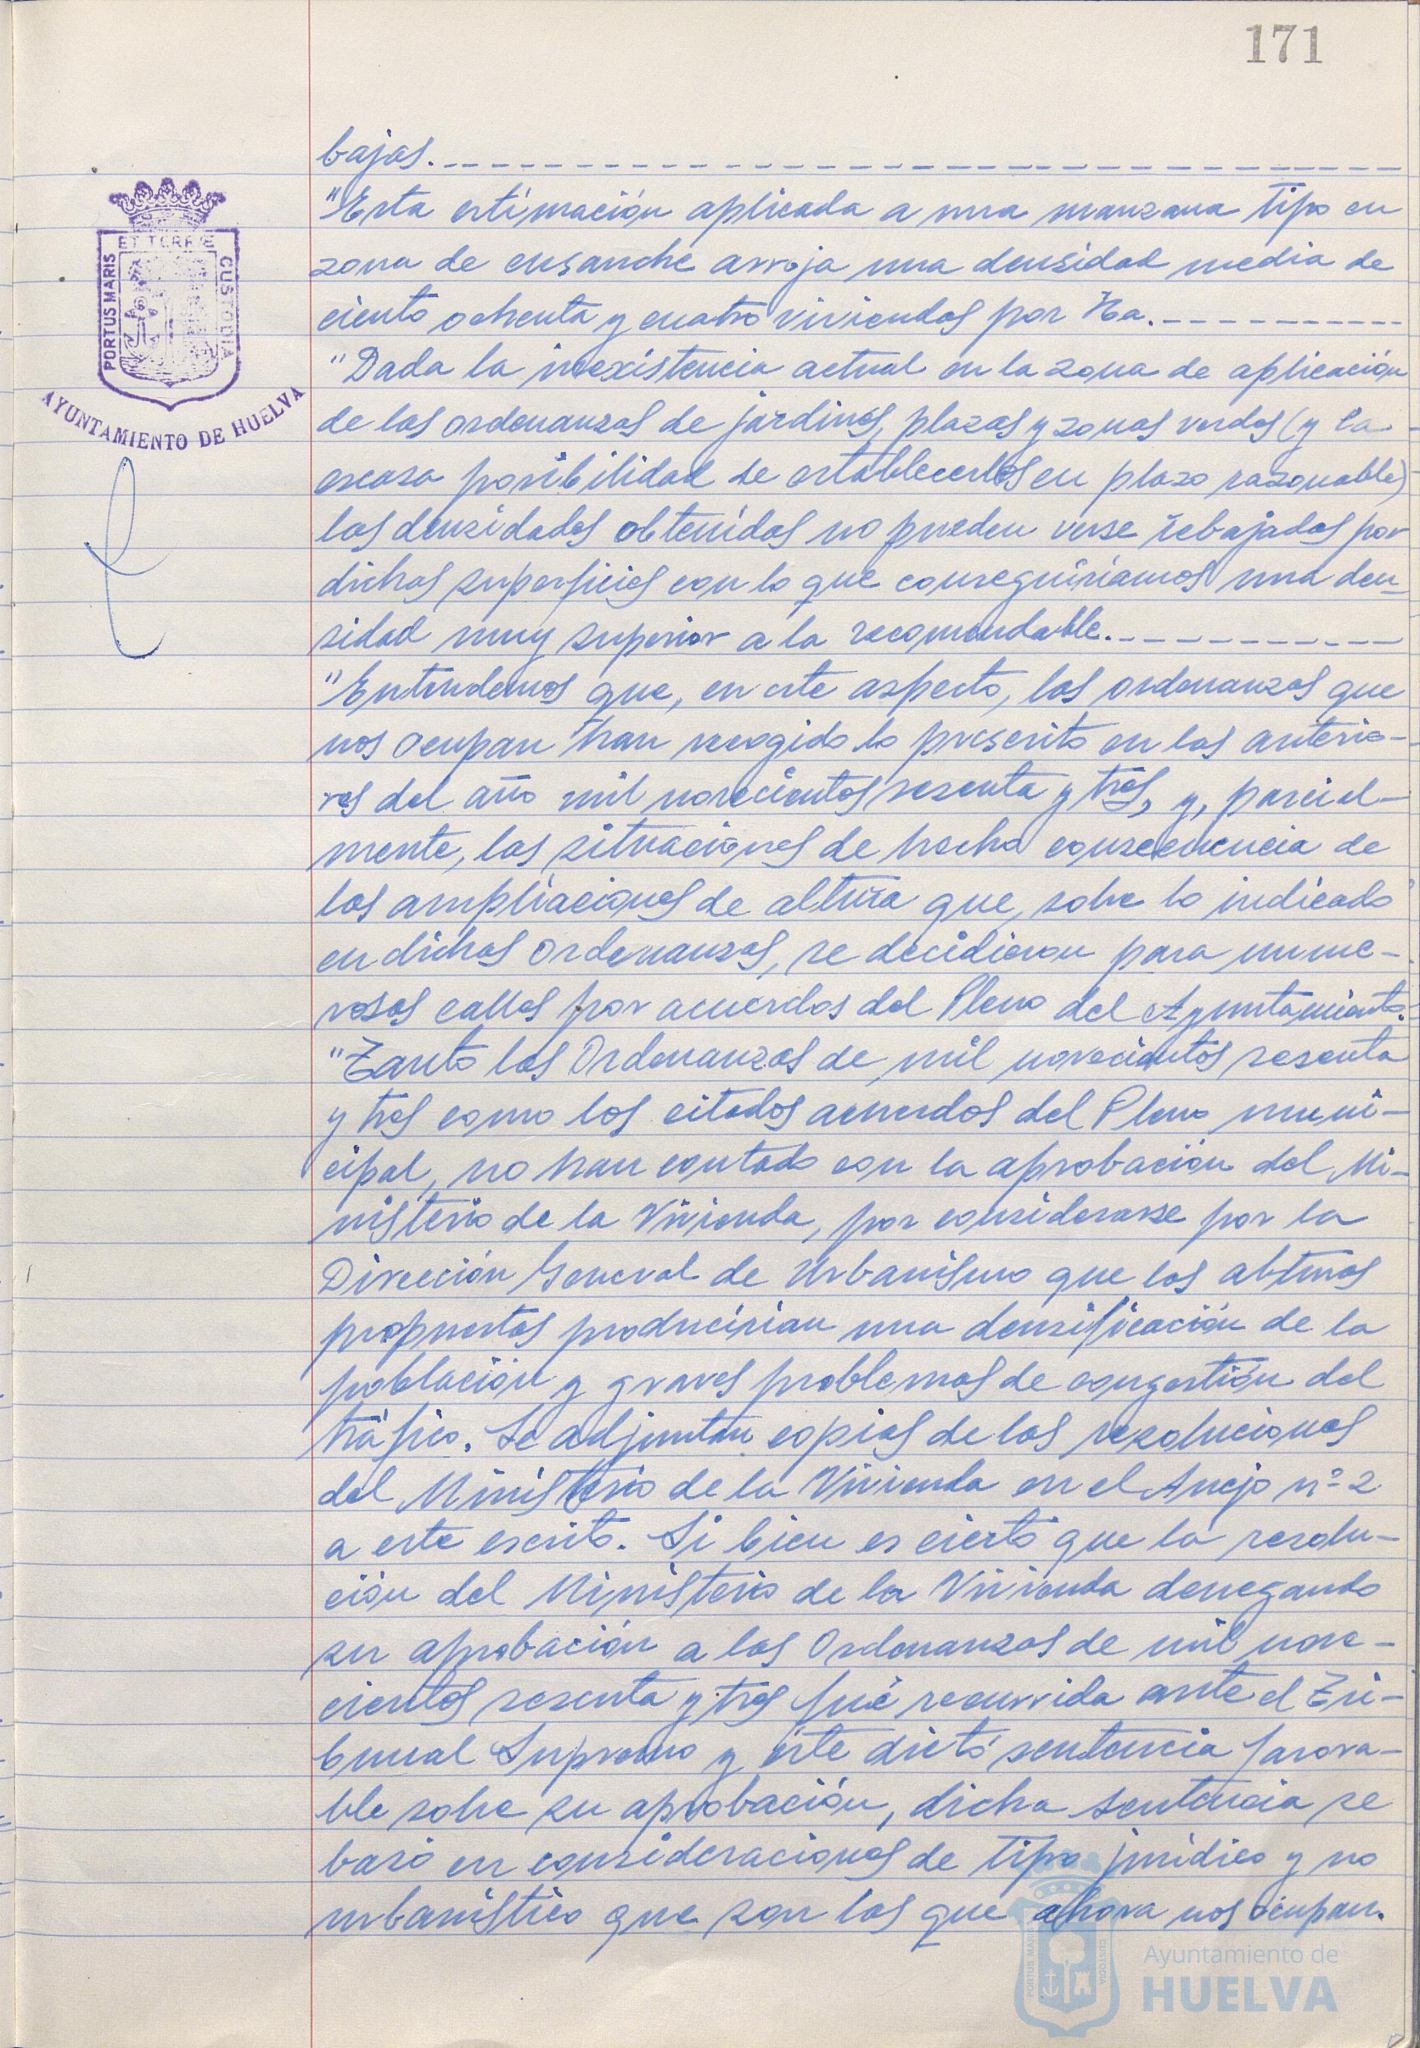 171
bajas.
"Esta estimación aplicada a una manzana tipo en
zona de ensanche arroja una densidad media de
ciento ochenta y cuatro viviendas por Ha.
"Dada la inexistencia actual en la zona de aplicación
de las ordenanzas de jardines, plazas y zonas verdes (y la
escasa posibilidad de establecerlos en plazo razonable)
las densidades obtenidas no pueden verse rebajadas por
dichas superficies con lo que conseguiríamos una den-
sidad muy superior a la recomendable.
"Entendemos que, en este aspecto, las ordenanzas que
nos ocupan han recogido lo prescrito en las anterio-
res del año mil novecientos sesenta y tres, y, parcial-
mente, las situaciones de hecho consecuencia de
las ampliaciones de altura que, sobre lo indicado
en dichas Ordenanzas, se decidieron para nume-
rosas calles por acuerdos del Pleno del Ayuntamiento.
"Tanto las Ordenanzas de mil novecientos sesenta
y tres como los citados acuerdos del Pleno muni-
cipal, no han contado con la aprobación del Mi-
nisterio de la Vivienda, por considerarse por la
Dirección General de Urbanismo que las alturas
propuestas producirían una densificación de la
población y graves problemas de congestión del
tráfico. Se adjuntan copias de las resoluciones
del Ministerio de la Vivienda en el Anejo nº 2
a este escrito. Si bien es cierto que la resolu-
ción del Ministerio de la Vivienda denegando
su aprobación a las Ordenanzas de mil nove-
cientos sesenta y tres fué recurrida ante el Tri-
bunal Supremo y éste dictó sentencia favora-
ble sobre su aprobación, dicha sentencia se
basó en consideraciones de tipo jurídico y no
urbanístico que son las que ahora nos ocupan.
PORTUS MARIS
ET TERRE
CUSTODIA
AYUNTAMIENTO DE HUELVA
Ayuntamiento de
HUELVA